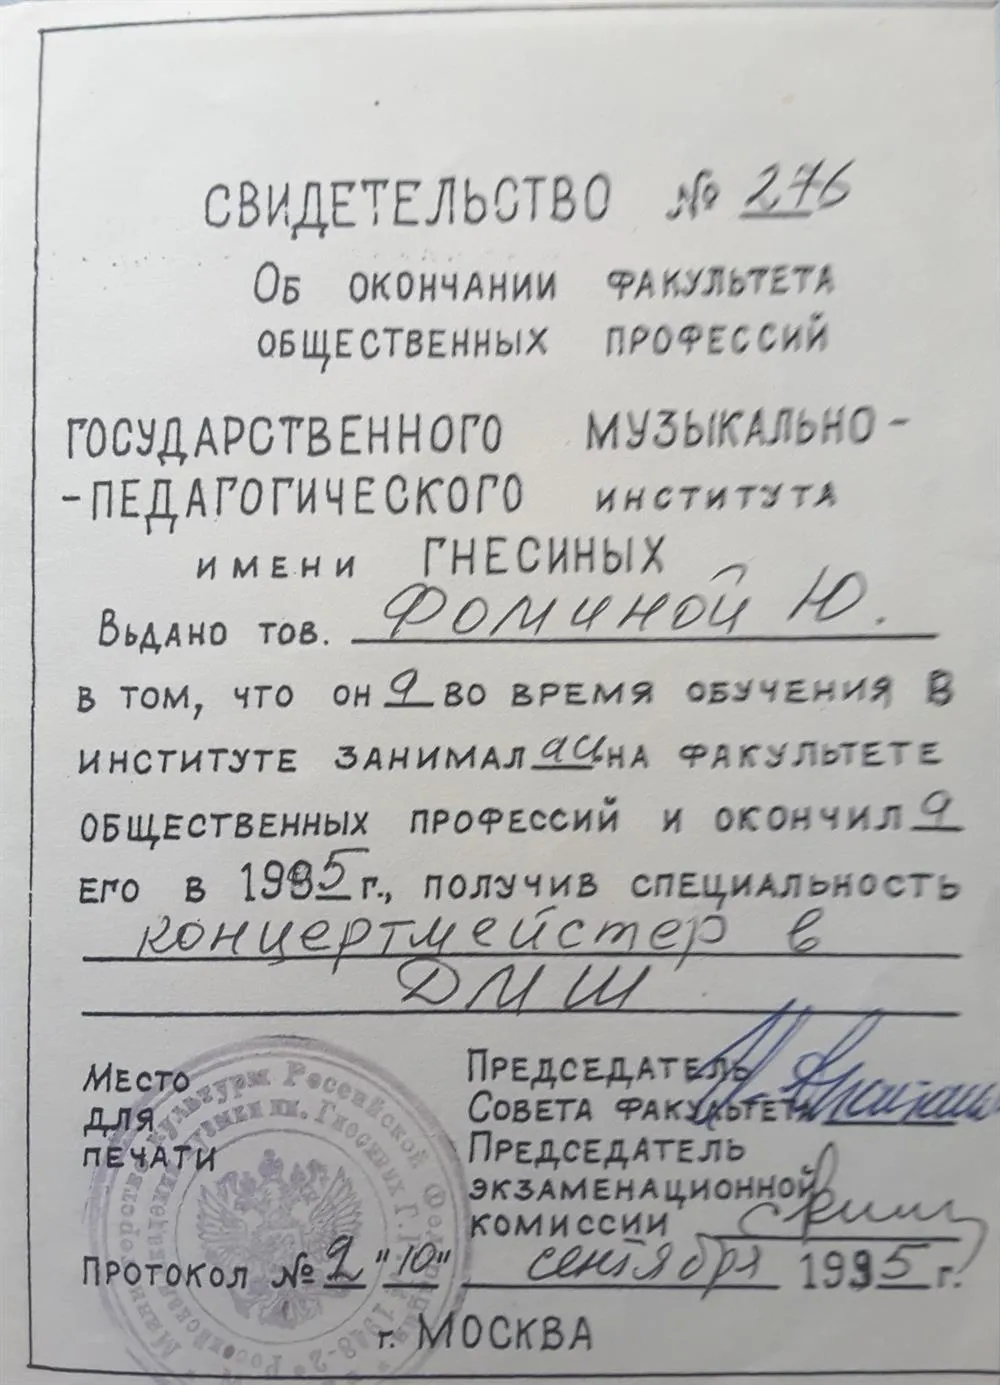 СВИДЕТЕЛЬСТВО № 276
ОБ ОКОНЧАНИИ ФАКУЛЬТЕТА
ОБЩЕСТВЕННЫХ ПРОФЕССИЙ
ГОСУДАРСТВЕННОГО МУЗЫКАЛЬНО-
-ПЕДАГОГИЧЕСКОГО ИНСТИТУТА
ИМЕНИ ГНЕСИНЫХ
ВЫДАНО ТОВ. Фоминой Ю.
В ТОМ, ЧТО ОНа ВО ВРЕМЯ ОБУЧЕНИЯ В
ИНСТИТУТЕ ЗАНИМАЛась НА ФАКУЛЬТЕТЕ
ОБЩЕСТВЕННЫХ ПРОФЕССИЙ И ОКОНЧИЛа
ЕГО В 1995 г., ПОЛУЧИВ СПЕЦИАЛЬНОСТЬ
концертмейстер в
ДМШ
МЕСТО
ДЛЯ
ПЕЧАТИ
ПРЕДСЕДАТЕЛЬ
СОВЕТА ФАКУЛЬТЕТА
ПРЕДСЕДАТЕЛЬ
ЭКЗАМЕНАЦИОННОЙ
КОМИССИИ
ПРОТОКОЛ № 2 "10" сентября 1995 г.
г. МОСКВА
Министерство культуры Российской Федерации
им. Гнесиных